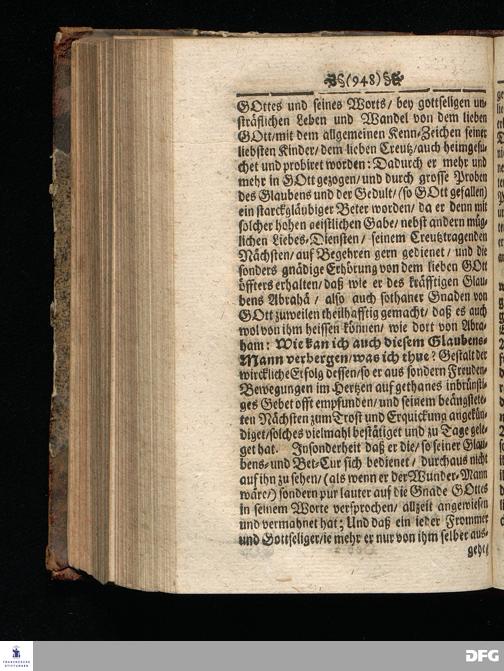 §(948)§
GOttes und seines Worts/ bey gottseligen un-
sträflichen Leben und Wandel von dem lieben
GOtt/mit dem allgemeinen Kenn-Zeichen seiner
liebsten Kinder/ dem lieben Creutz/auch heimgesu-
chet und probiret worden: Dadurch er mehr und
mehr in GOtt gezogen/ und durch grosse Proben
des Glaubens und der Gedult/ (so GOtt gefallen)
ein starckgläubiger Beter worden/ da er denn mit
solcher hohen geistlichen Gabe/ nebst andern müg-
lichen Liebes-Diensten/ seinem Creutztragenden
Nächsten/ auf Begehren gern gedienet/ und die
sonders gnädige Erhörung von dem lieben GOtt
öffters erhalten/ daß wie er des kräfftigen Glau-
bens Abrahã/ also auch sothaner Gnaden von
GOtt zuweilen theilhafftig gemacht/ daß es auch
wol von ihm heissen können/ wie dort von Abra-
ham: Wie kan ich auch diesem Glaubens-
Mann verbergen/was ich thue? Gestalt der
wirckliche Erfolg dessen/so er aus sondern Freuden-
Bewegungen im Hertzen auf gethanes inbrünsti-
ges Gebet offt empfunden/ und seinem beängstete-
ten Nächsten zum Trost und Erquickung angekün-
diget/solches vielmahl bestätiget und zu Tage gele-
get hat. Insonderheit daß er die/ so seiner Glau-
bens- und Bet-Cur sich bedienet/ durchaus nicht
auf ihn zu sehen/ (als wenn er der Wunder-Mann
wäre/) sondern pur lauter auf die Gnade GOttes
in seinem Worte versprochen/ allzeit angewiesen
und vermahnet hat; Und daß ein ieder Frommer
und Gottseliger/ie mehr er nur von ihm selber aus-
gehet
FRANCKESCHE STIFTUNGEN
DFG